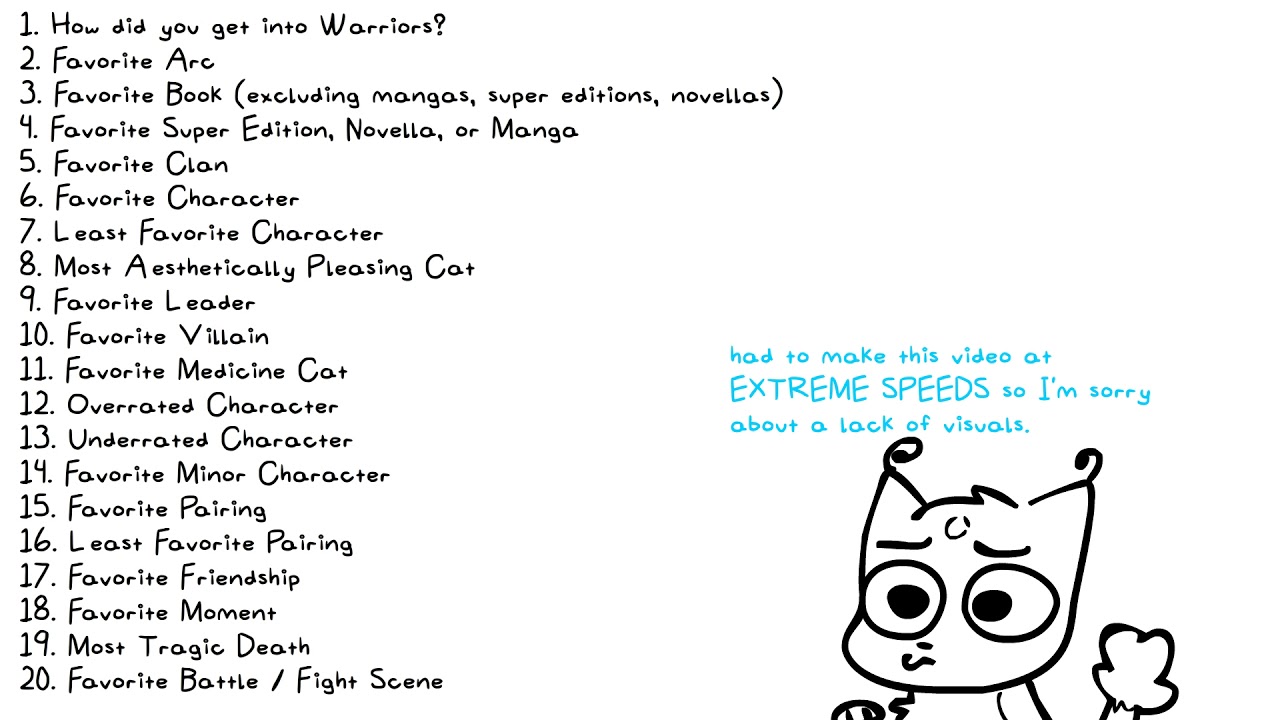 1. How did you get into Warriors?
2. Favorite Arc
3. Favorite Book (excluding mangas, super editions, novellas)
4. Favorite Super Edition, Novella, or Manga
5. Favorite Clan
6. Favorite Character
7. Least Favorite Character
8. Most Aesthetically Pleasing Cat
9. Favorite Leader
10. Favorite Villain
11. Favorite Medicine Cat
12. Overrated Character
13. Underrated Character
14. Favorite Minor Character
15. Favorite Pairing
16. Least Favorite Pairing
17. Favorite Friendship
18. Favorite Moment
19. Most Tragic Death
20. Favorite Battle / Fight Scene
had to make this video at
EXTREME SPEEDS so I'm sorry
about a lack of visuals.